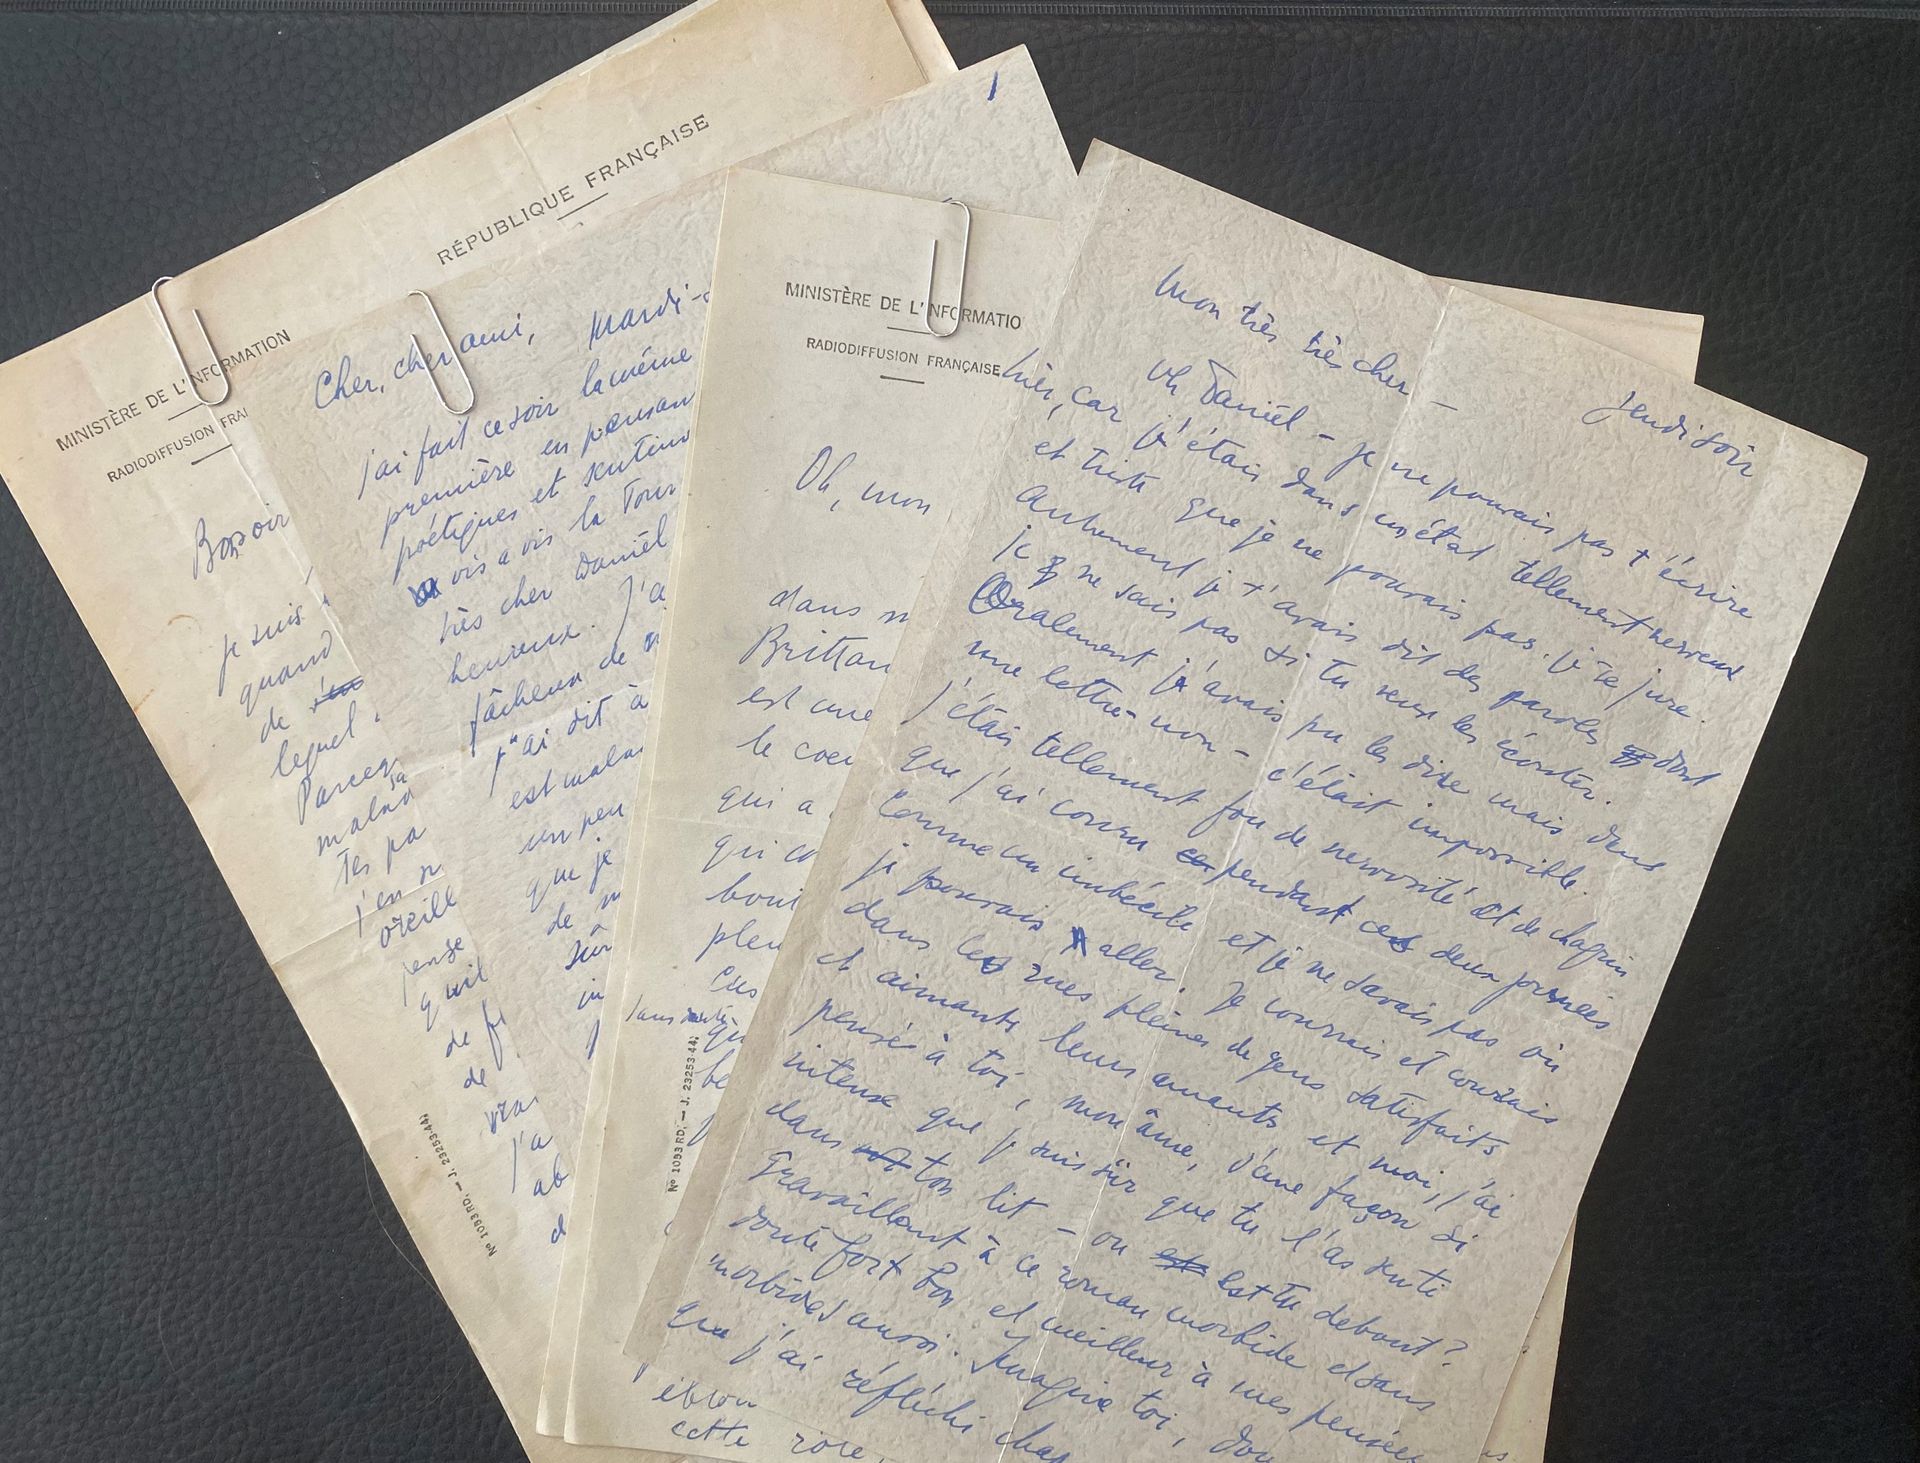 RÉPUBLIQUE FRANÇAISE
MINISTÈRE DE L'INFORMATION
RADIODIFFUSION FRAI
Bonsoir
je suis
quand
de
lequel
Parceq
malad
tes pa
j'en
oreill
pense
qu'il
de
de
vrai
j'a
ab
d
Nº 1093 RD. — J. 23253-44
Cher, cher ami, Mardi-
j'ai fait ce soir la même
première en pensan
poétiques et
vis a vis la Tour
très cher Daniel
heureux. J'a
fâcheux de
j'ai dit à
est malad
un peu
que je
de m
sûr
in
1
MINISTÈRE DE L'INFORMATIO
RADIODIFFUSION FRANÇAISE
Oh, mon
dans
Brittan
est une
le coeu
qui a
qui
bout
pleu
ces
sans
qu
be
Nº 1093 RD. — J. 23253-44
cette rose
Mon très très cher —
Jeudi soir
Oh Daniel — je ne pouvais pas t'écrire
hier, car j'étais dans un état tellement nerveux
et triste que je ne pouvais pas. je te jure.
Autrement je t'avais dit des paroles dont
je ne sais pas si tu veux les écouter.
Oralement j'avais pu les dire mais dans
une lettre – non – c'était impossible.
j'étais tellement fou de nervosité et de chagrin
que j'ai couru pendant ces deux journées
comme un imbécile et je ne savais pas où
je pouvais aller. Je courrais et courrais
dans les rues pleines de gens satisfaits
et aimants leurs amants et moi, j'ai
pensé à toi, mon âme, d'une façon si
intense que je suis sûr que tu l'as senti
dans ton lit – ou est tu debout?
Travaillant à ce roman morbide et sans
doute fort bon et meilleur à mes pensées
morbides aussi. Imagine toi,
que j'ai réfléchi